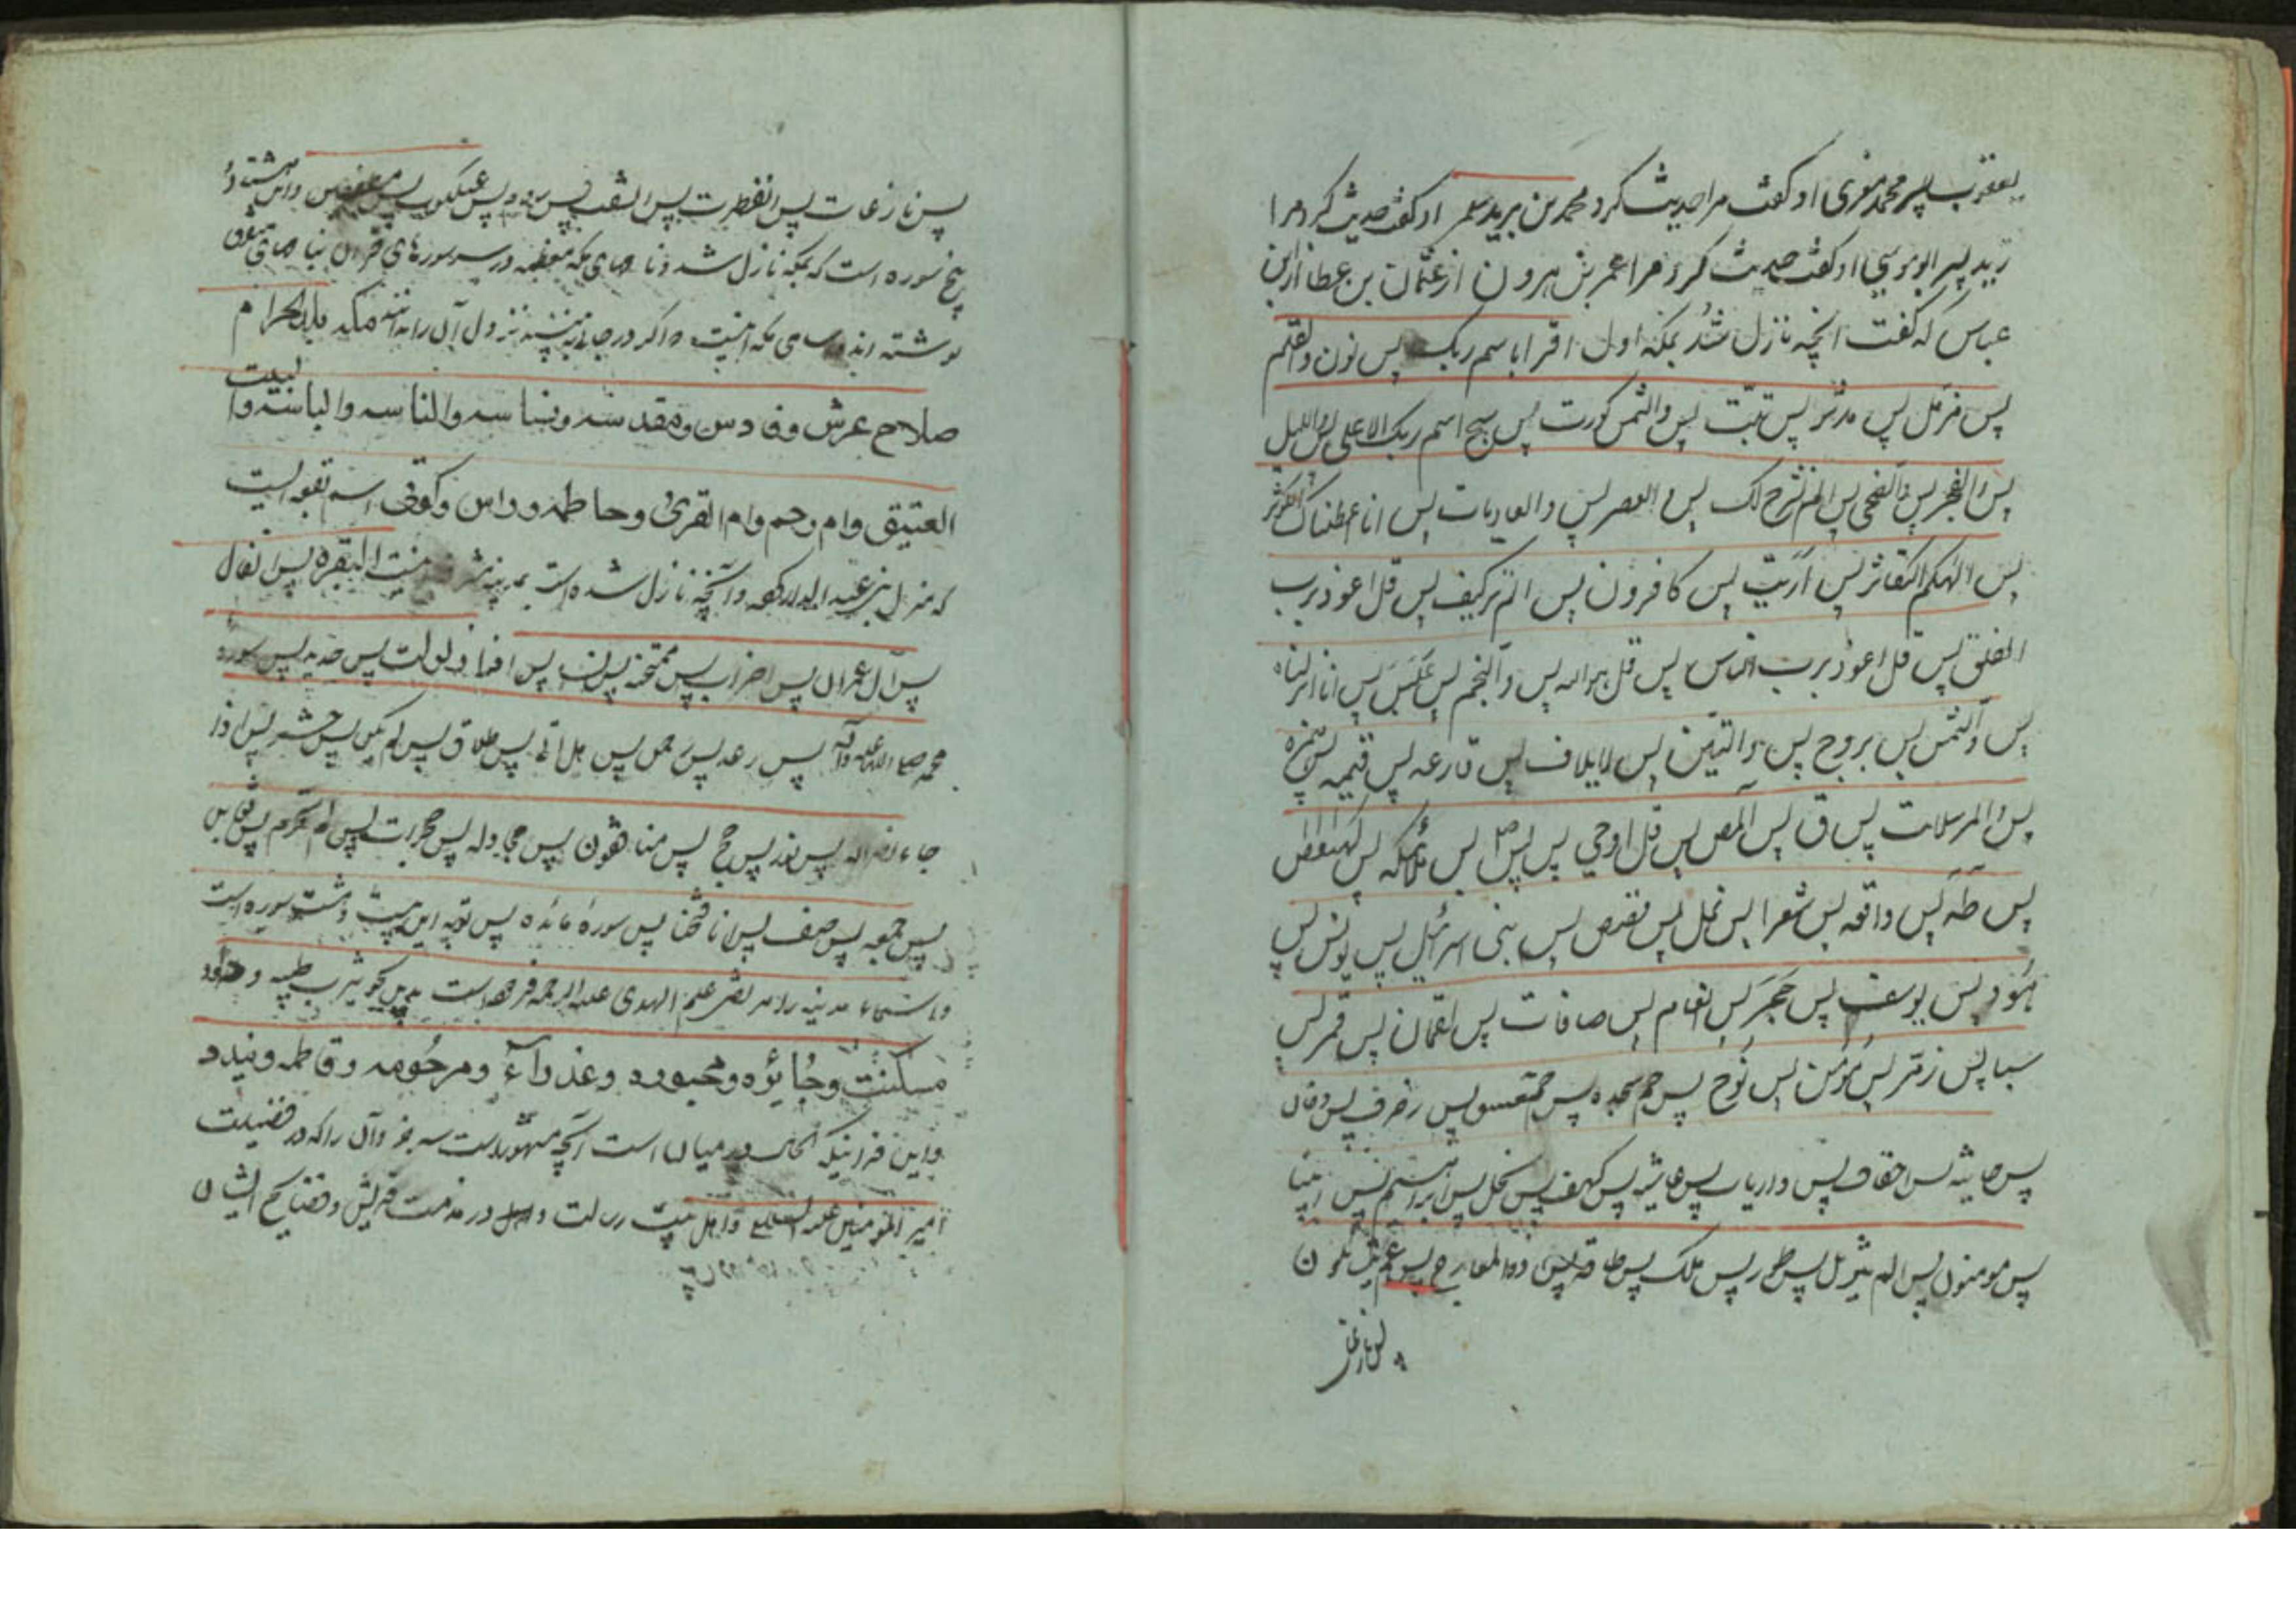 یعقوب پسر محمد مغری او کفت مرا حدیث کرد محمد بن یزید او کفت حدیث کرد مرا
زید پسر ابو موسی او کفت حدیث کرد مرا عمر بن هرون از عثمان بن عطا از ابن
عباس که کفت انچه نازل شد بمکه اول اقرا باسم ربک پس نون والقلم
پس مزمل پس مدثر پس تبت پس والشمس کورت پس سبح اسم ربک الاعلی پس واللیل
پس والفجر پس والضحی پس الم نشرح لک پس والعصر پس والعادیات پس انا اعطیناک الکوثر
پس الهکم التکاثر پس ارایت پس کافرون پس الم تر کیف پس قل اعوذ برب
الفلق پس قل اعوذ برب الناس پس قل هو الله پس والنجم پس عبس پس انا انزلناه
پس والشمس پس بروج پس والتین پس لایلاف پس قارعه پس قیمه پس همزه
پس والمرسلات پس ق پس المص پس قل اوحی پس یس پس ملائکه پس کهیعص
پس طه پس واقعه پس شعرا پس نمل پس قصص پس بنی اسرائیل پس یونس پس
هود پس یوسف پس حجر پس انعام پس صافات پس لقمان پس قمر پس
سبا پس زمر پس مؤمن پس نوح پس حم سجده پس حمعسق پس زخرف پس دخان
پس جاثیه پس احقاف پس داریات پس غاشیه پس کهف پس نحل پس ابراهیم پس انبیا
پس مومنون پس الم تنزیل پس طور پس ملک پس حاقه پس ذو المعارج پس عم یتسائلون
پس نازعات
پس نازعات پس انفطرت پس انشقت پس روم پس عنکبوت پس مطففین واین هشتاد و
پنج سوره است که بمکه نازل شد ونامهای مکه معظمه در سر سورهای قران بنامهای متفرق
نوشته اند اسامی مکه اینست واکر در جای به بینند نزول آن را بدانند مکه بلد الحرام
صلاح عرش وقادس ومقدسه ونساسه والناسه والباسه والبیت
العتیق وام رحم وام القری وحاطمه وراس وکوثی اسم بقعه ایست
که منزل بنی عبد الدار بود وآنچه نازل شده است بمدینه البقره پس انفال
پس آل عمران پس احزاب پس ممتحنه پس نساء پس اذا زلزلت پس حدید پس سوره
محمد صلی الله علیه وآله پس رعد پس رحمن پس هل اتی پس طلاق پس لم یکن پس حشر پس اذا
جاء نصر الله پس نور پس حج پس منافقون پس مجادله پس حجرات پس لم تحرم پس تغابن
پس جمعه پس صف پس انا فتحنا پس سوره مائده پس توبه این بیست وهشت سوره است
واسماء مدینه را مرتضی علم الهدی علیه الرحمه فرموده است یثرب طیبه
مسکنت وجائزه ومحبوره وعذراء ومرحومه وقاصمه ویندد
واین قرانیکه الحال در میان است آنچه مشهور است سه جزو آن را که در فضیلت
امیر المؤمنین علیه السلام واهل بیت رسالت و در مذمت قریش وفضایح ایشان